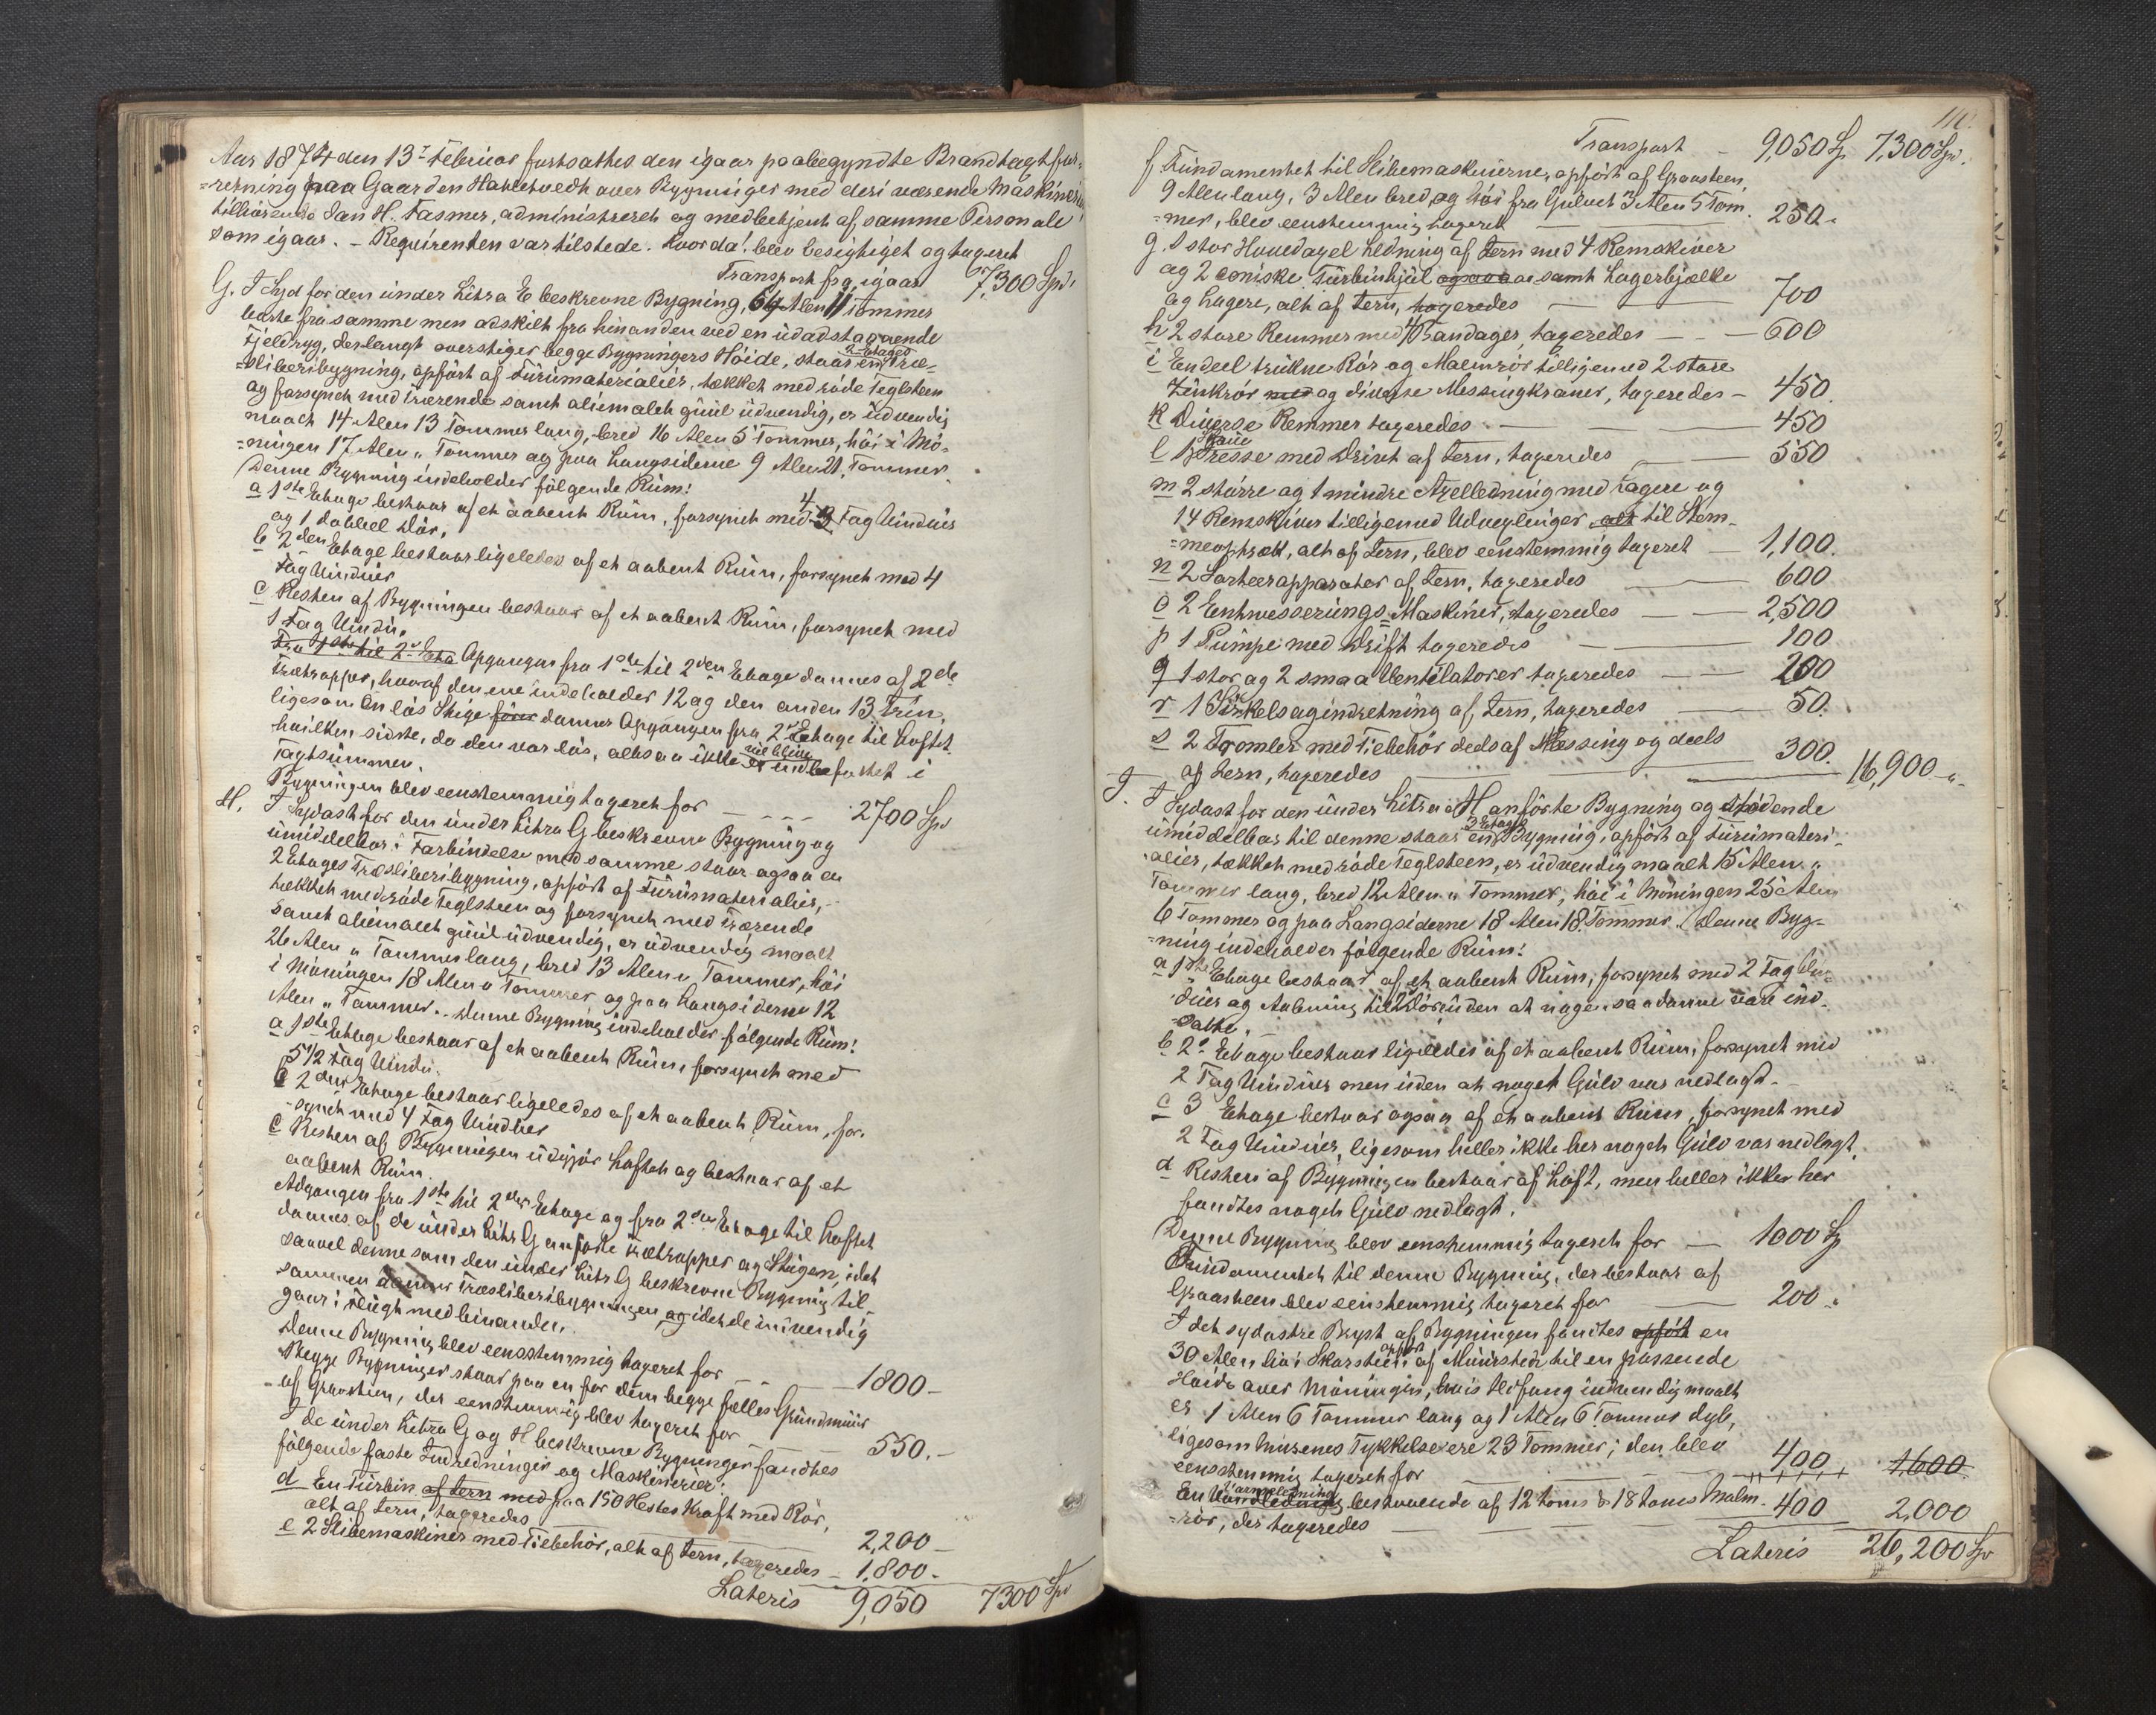 Aar 1874 den 13de Februar fortsattes den igaar paabegyndte Brandtagtfor-
=retning paa Gaarden Hatletvedt over Bygninger med deri værende Maskineri
tilhørende Jan H. Fasmer, administreret og medbetjent af samme Personale
som igaar. - Requirenten var tilstede. Hvorda! blev besigtiget og taxeret
Transport fra igaar 7,300 Spd.
G. I Syd for den under Litra E beskrevne Bygning, 64 Alen 11 Tommer
borte fra samme men adskilt fra hinanden ved en udadstaaende
Fjeldryg, der langt overstiger begge Bygningers Høide, staar en 2 Etages Træ-
=sliberibygning, opført af Furumaterialier, tækket med røde Teglsteen
og forsynet med Trærende samt aliemalet guul udvendig, er udvendig
maalt 14 Alen 13 Tommer lang, bred 16 Alen 5 Tommer, høi i Mø-
=ningen 17 Alen " Tommer og paa Langsiderne 9 Alen 21 Tommer.
Denne Bygning indeholder følgende Rum!
a 1ste Etage bestaar af et aabent Rum, forsynet med 4 Fag Vinduer
og 1 dobbel Dør.
b 2den Etage bestaar ligeledes af et aabent Rum, forsynet med 4
Fag Vinduer
c Resten af Bygningen bestaar af et aabent Rum, forsynet med
1 Fag Vindu.
Fra 1ste til 2d Eta Opgangen fra 1ste til 2den Etage dannes af 2de
Trætrapper, hvoraf den ene indeholder 12 og den anden 13 Trin,
ligesom en løs Stige danner Opgangen fra 2d Etage til Loftet
hvilken sidste, da den var løs, altsaa ikke vil blive befattet i
Tagtsummen.
Bygningen blev eenstemmig taxeret for - - - - 2700 Spd
H. I Sydost for den under Litra G beskrevne Bygning og
umiddelbar i Forbindelse med samme staar ogsaa en
2 Etages Træsliberibygning, opført af Furumaterialier,
tækket med røde Teglsteen og forsynet med Trærende
samt aliemalet guul udvendig, er udvendig maalt
26 Alen " Tommer lang, bred 13 Alen " Tommer, høi
i Møningen 18 Alen " Tommer og paa Langsiderne 12
Alen " Tommer. - Denne Bygning indeholder følgende Rum!
a 1ste Etage bestaar af et aabent Rum, forsynet med
5 1/2 Fag Vindu.
b 2den Etage bestaar ligeledes af et aabent Rum, for-
=synet med 4 Fag Vinduer
c Resten af Bygningen udgjør Loftet og bestaar af et
aabent Rum.
Adgangen fra 1ste til 2den Etage og fra 2den Etage til Loftet
dannes af de under Litr G anførte Trætrapper og Stigen, idet
saavel denne som den under Litr G beskrevne Bygning til-
sammen danner Træsliberibygningen og idet de indvendig
gaar i Flugt med hinanden.
Denne Bygning blev eensstemmig taxeret for - - - 1800 -
Begge Bygninger staar paa en for dem begge fælles Grundmuur
- af Graasteen, der eenstemmig blev taxeret for - - - 550. -
I de under Litra G og H beskrevne Bygninger fandtes
følgende faste Indredninger og Maskinerier.
d En Turbin af Jern med paa 150 Hestes Kraft med Rør,
alt af Jern, taxeredes - 2,200 -
e 2 Slibemaskiner med Tilbehør, alt af Jern, taxeredes - 1.800 -
Lateris 9,050 7300 Spd
110.
Transport - 9,050 Sp 7,300 Spd.
f Fundamentet til Slibemaskinerne, opført af Graasteen,
9 Alen lang, 3 Alen bred og høi fra Gulvet 3 Alen 5 Tom-
=mer, blev eenstemmig taxeret - 250 -
g. 1 stor Hovedaxel Ledning af Jern med 4 Remskiver
og 2 coniske Turbinhjul samt Lagerbjælke
og Lagere, alt af Jern, taxeredes - 700
h 2 store Remmer med 4 Bandager, taxeredes - - 600
i Endeel trukne Rør og Malmrør tilligemed 2 store
Zinkrør med og diverse Messingkraner, taxeredes - 450.
k Diverse Remmer taxeredes - 450
l 1 Skrue Presse med Drivt af Jern, taxeredes - 550
m 2 større og 1 mindre Axelledning med Lagere og
14 Remskiver tilligemed Udvexlinger, alt til Rem-
=meoptræk, alt af Jern, blev eenstemmig taxeret - 1,100.
n 2 Sorteerapparater af Jern, taxeredes - 600
o 2 Entwesserings=Maskiner, taxeredes - 2,500
p 1 Pumpe med Drift taxeredes - 100
q 1 stor og 2 smaa Ventilatorer taxeredes - 200
r 1 Sirkelsagindretning af Jern, taxeredes - 50.
s 2 Tromler med Tilbehør deels af Messing og deels
af Jern, taxeredes - 300. 16,900 - "
J. I Sydost for den under Litra H anførte Bygning og stødende
umiddelbar til denne staar en 3 Etages Bygning, opført af Furumateri-
=alier, tækket med røde Teglsteen, er udvendig maalt 15 Alen "
Tommer lang, bred 12 Alen " Tommer, høi i Møningen 25 Alen
6 Tommer og paa Langsiderne 18 Alen 18 Tommer. Denne Byg-
=ning indeholder følgende Rum!
a 1ste Etage bestaar af et aabent Rum, forsynet med 2 Fag Vin-
duer og Aabning til Dør, uden at nogen saadanne vare ind-
=satte.
b 2d Etage bestaar ligeledes af et aabent Rum, forsynet med
2 Fag Vinduer men uden at noget Gulv var nedlagt.
c 3 Etage bestaar ogsaa af et aabent Rum, forsynet med
2 Fag Vinduer, ligesom heller ikke her noget Gulv var nedlagt.
d Resten af Bygningen bestaar af Loft, men heller ikke her
fandtes noget Gulv nedlagt.
Denne Bygning blev eenstemmig taxeret for - 1000 Sp
Fundamentet til denne Bygning, der bestaar af
Graasteen blev eenstemmig taxeret for - 200 "
I det sydostre Bryst af Bygningen fandtes opført en
30 Alen høi Skorsteen opført af Muursteen til en passende
Høide over Møningen, hvis Udfang indvendig maalt
er 1 Alen 6 Tommer lang og 1 Alen 6 Tommer dyb,
ligesom Murenes Tykkelse ere 23 Tommer; den blev
eenstemmig taxeret for - 400 1,600.
En Varmeledning bestaaende af 12 toms & 18 toms Malm-
=rør, der taxeredes - 400 2,000
Lateris 26,200 Spd